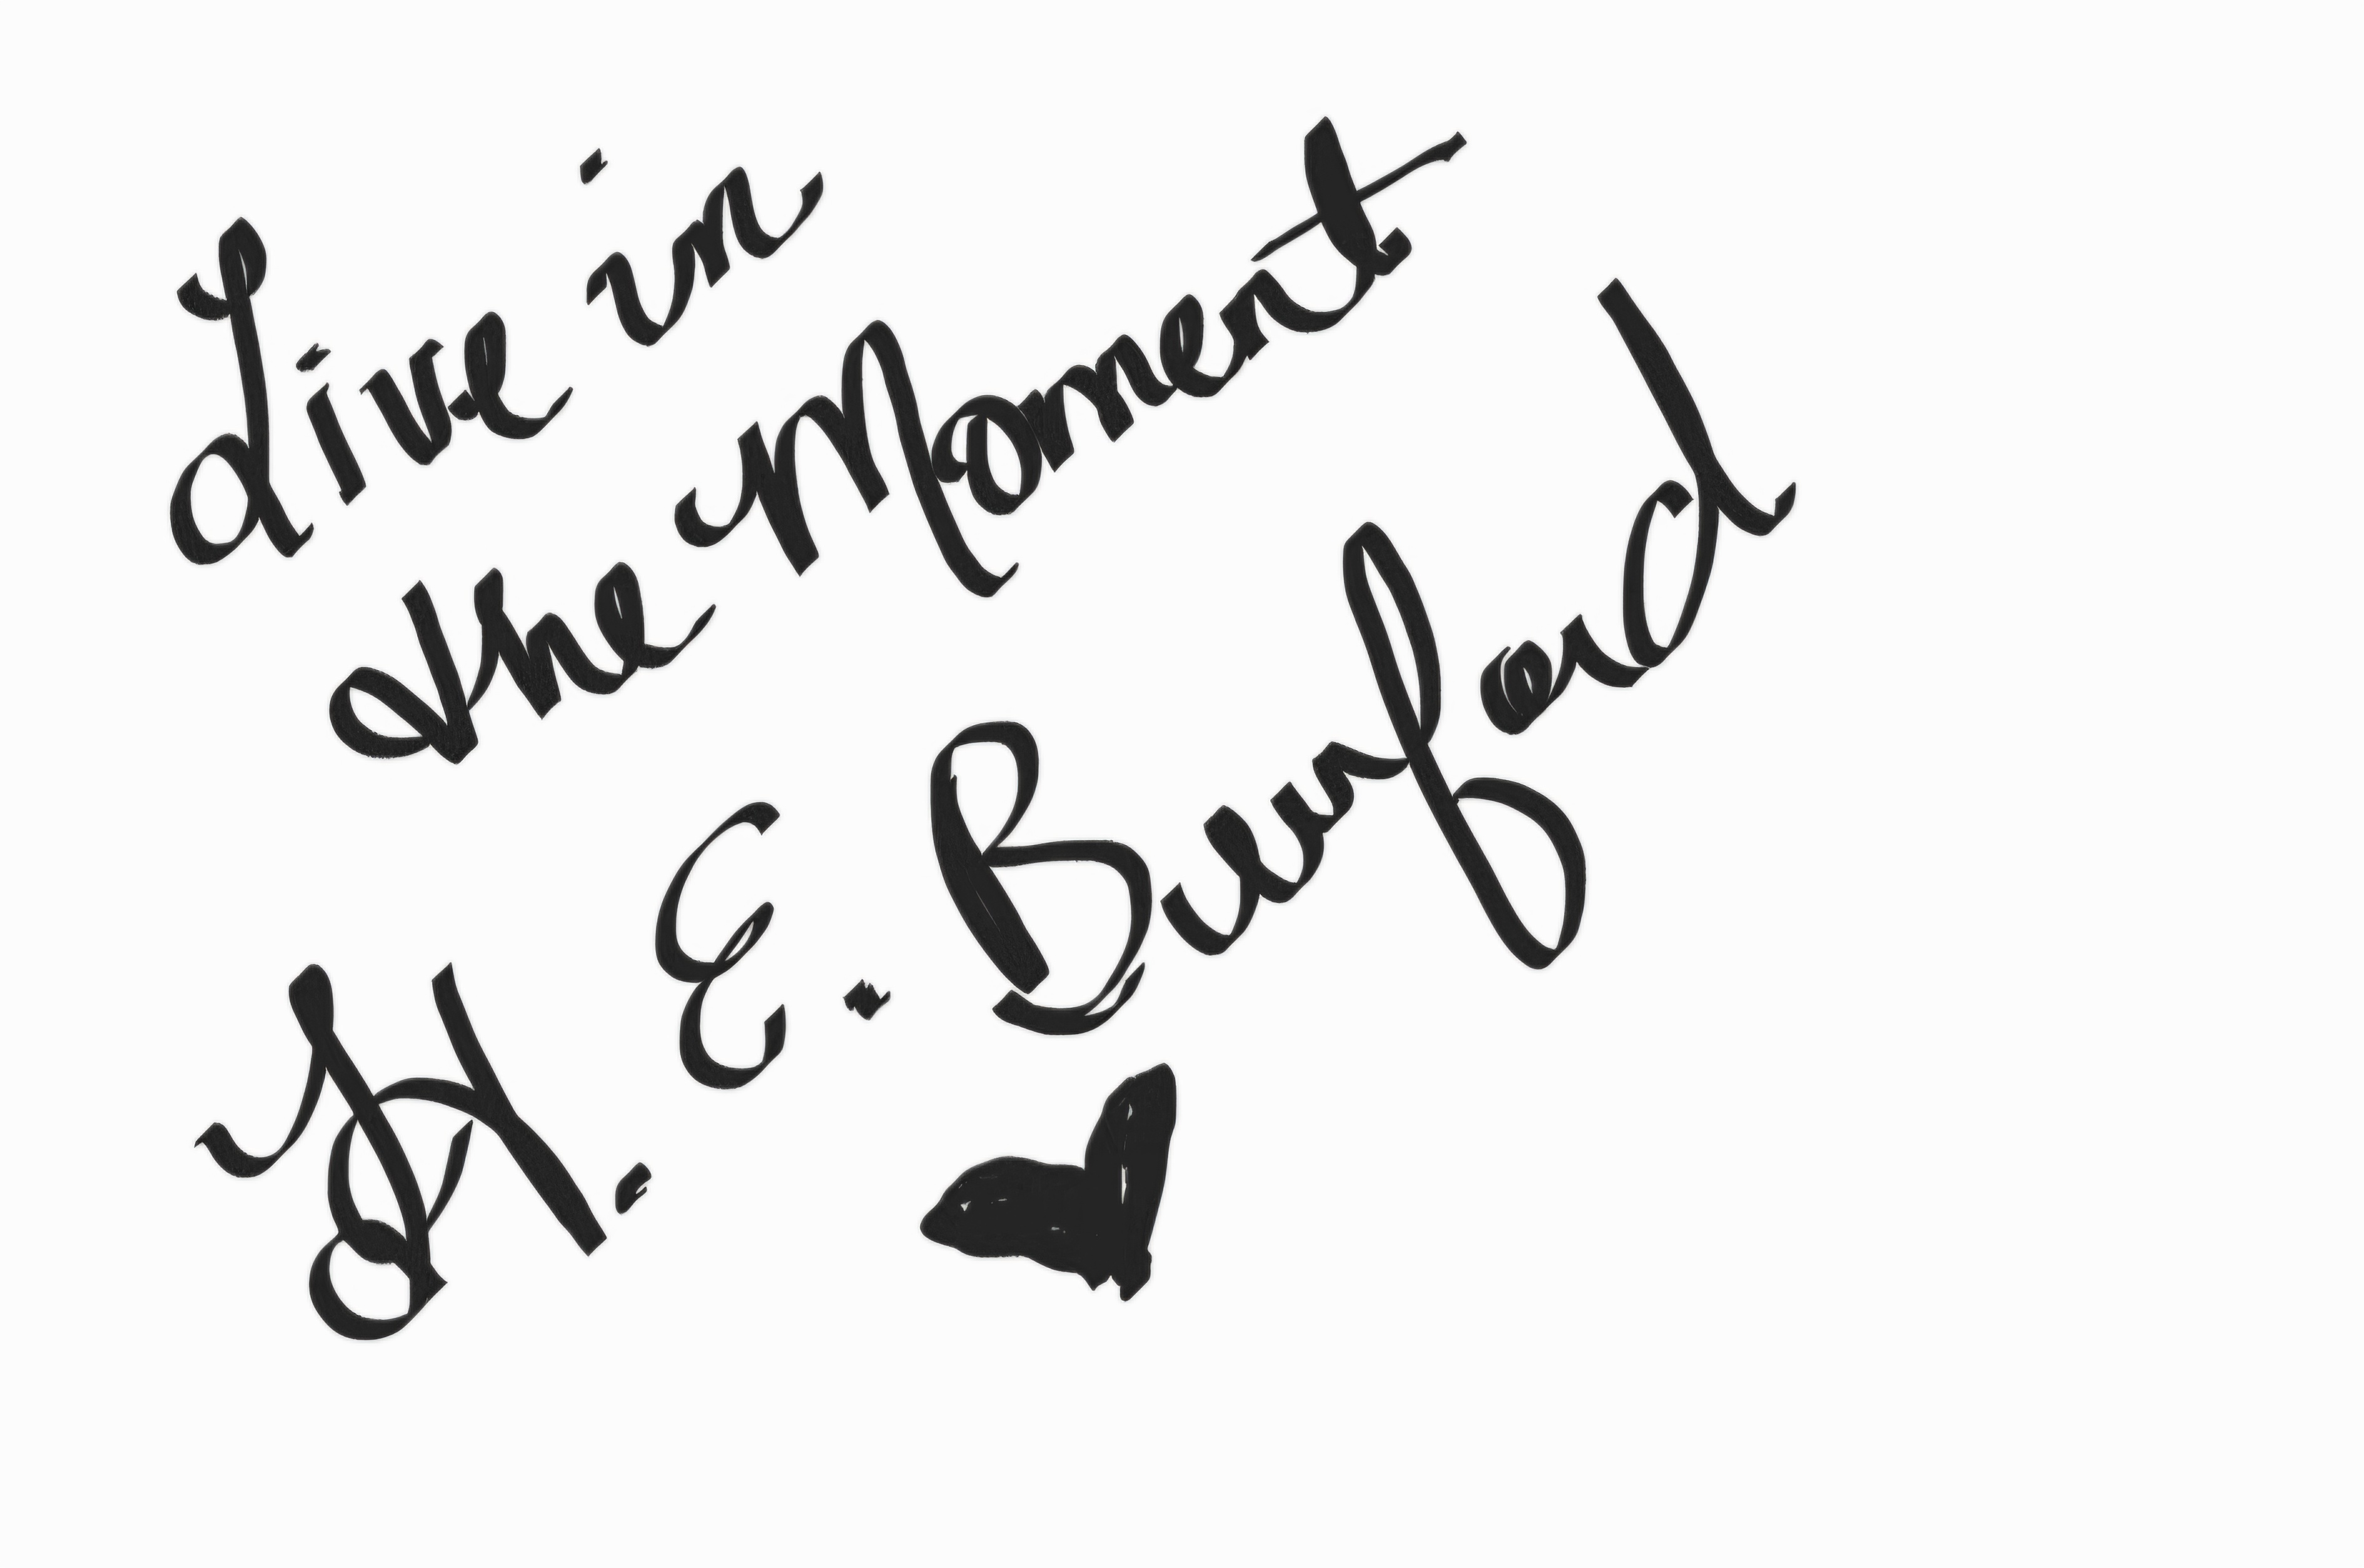 Live in
the Moment
H. E. Burford